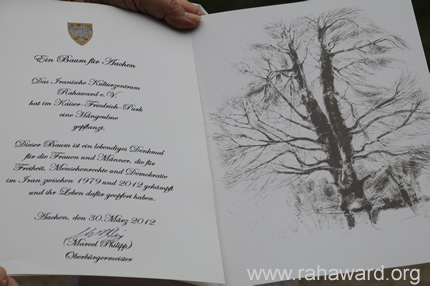 Ein Baum für Aachen
Das Iranische Kulturzentrum
Rahaward e.V.
hat im Kaiser-Friedrich-Park
eine Hängeulme
gepflanzt.
Dieser Baum ist ein lebendiges Denkmal
für die Frauen und Männer, die für
Freiheit, Menschenrechte und Demokratie
im Iran zwischen 1979 und 2012 gekämpft
und ihr Leben dafür geopfert haben.
Aachen, den 30. März 2012
(Marcel Philipp)
Oberbürgermeister
www.rahaward.org